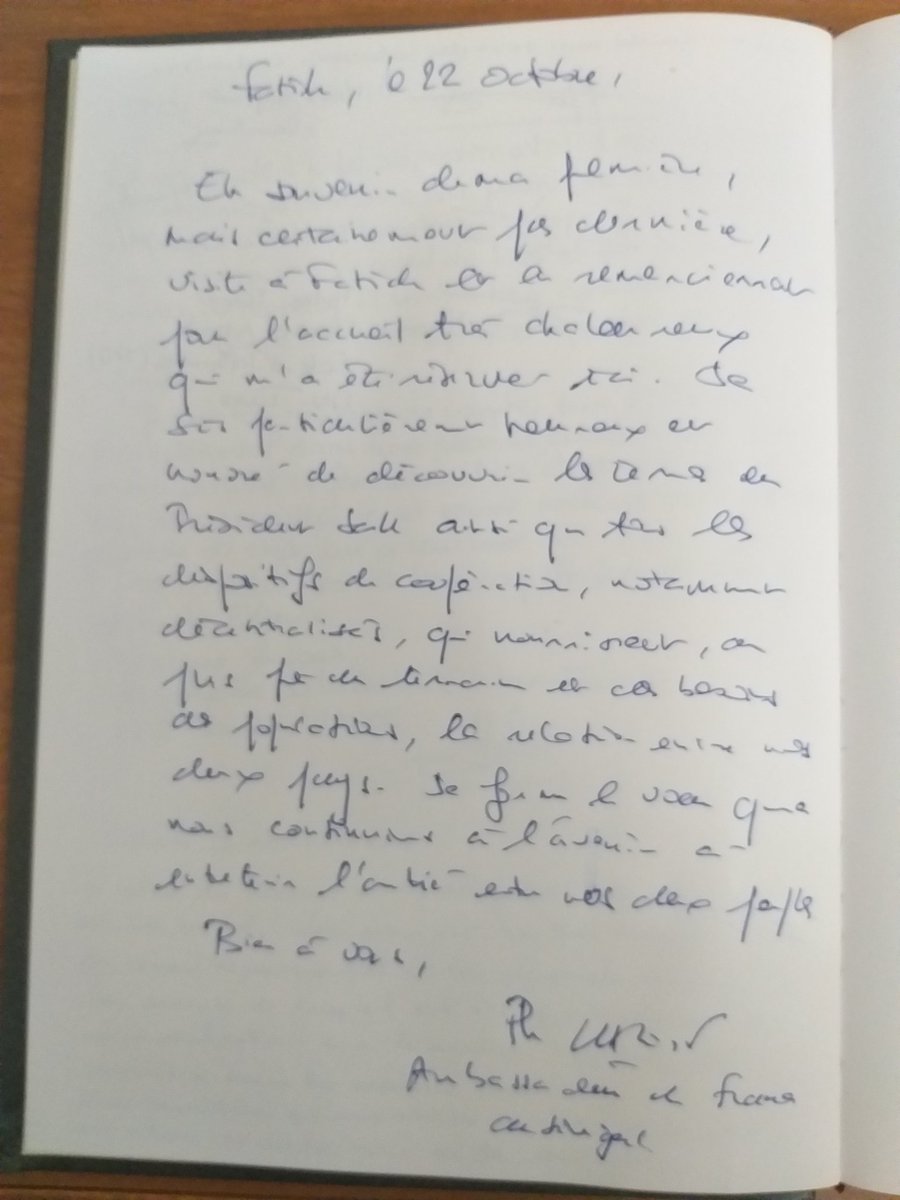 Fatick, le 22 octobre,
En souvenir de ma première,
mais certainement pas dernière,
visite à Fatick et en remerciement
pour l'accueil très chaleureux
qui m'a été réservé ici. Je
suis particulièrement heureux et
honoré de découvrir les terres du
Président Sall ainsi que tous les
dispositifs de coopération, notamment
décentralisés, qui nourrissent, au
plus près du terrain et des besoins
des populations, la relation entre nos
deux pays. Je forme le voeu que
nous continuions à l'avenir à
entretenir l'amitié entre nos deux peuples
Bien à vous,
Ph
Ambassadeur de France
au Sénégal